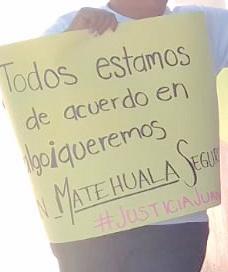 Todos estamos
de acuerdo en
algo¡queremos
UN MATEHUALA SEGURO
#JUSTICIAJUAN